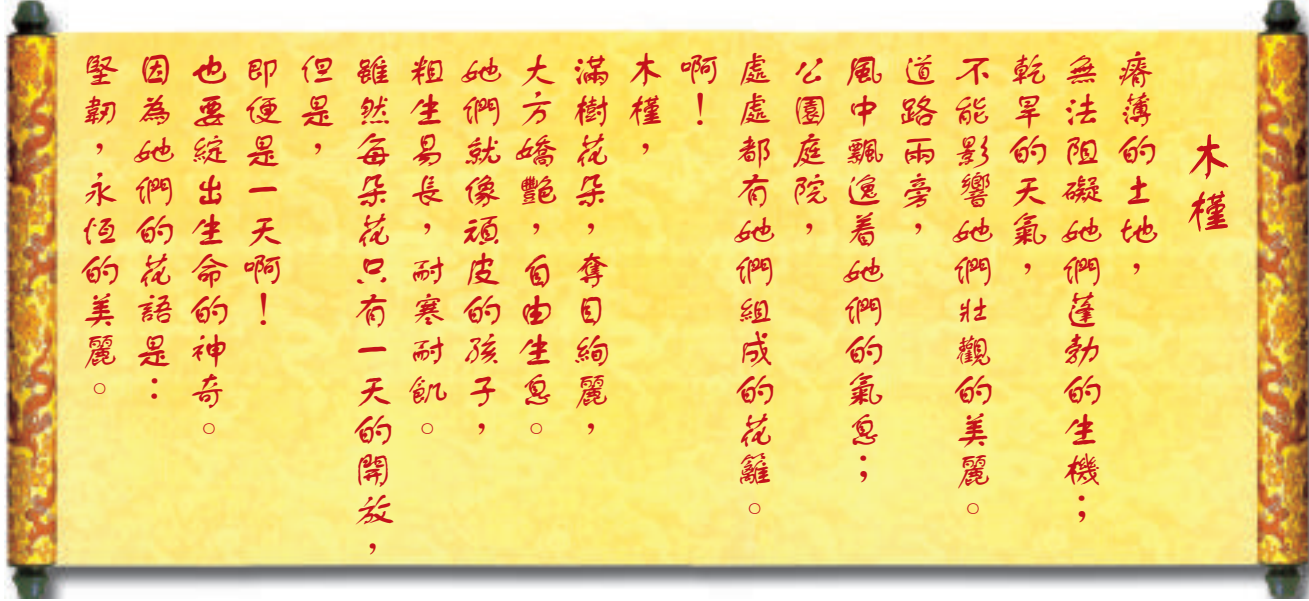 木槿
瘠薄的土地，
無法阻礙她們蓬勃的生機；
乾旱的天氣，
不能影響她們壯觀的美麗。
道路兩旁，
風中飄逸着她們的氣息；
公園庭院，
處處都有她們組成的花籬。
啊！
木槿，
滿樹花朵，奪目絢麗，
大方嬌艷，自由生息。
她們就像頑皮的孩子，
粗生易長，耐寒耐飢。
雖然每朵花只有一天的開放，
但是，
即便是一天啊！
也要綻出生命的神奇。
因為她們的花語是：
堅韌，永恆的美麗。